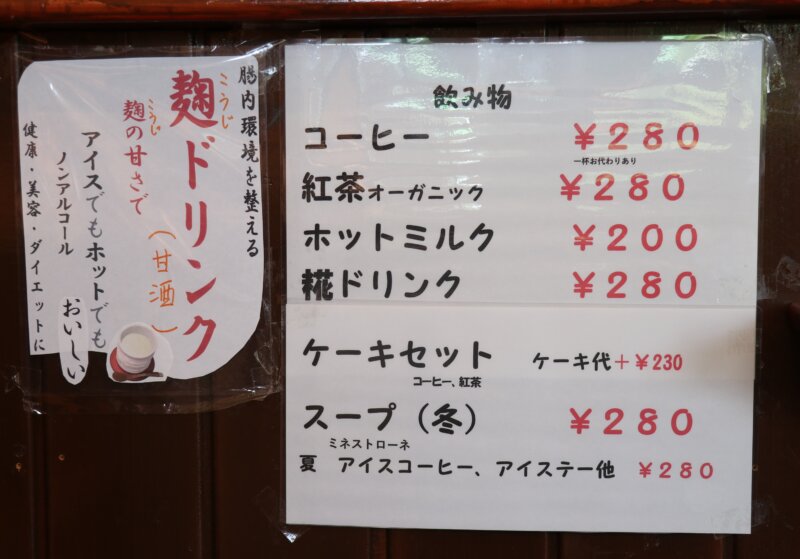 腸内環境を整える
こうじ
麹ドリンク
（甘酒）
こうじ
麹の甘さで
アイスでもホットでも
おいしい
ノンアルコール
健康・美容・ダイエットに
飲み物
コーヒー ￥280
一杯お代わりあり
紅茶オーガニック ￥280
ホットミルク ￥200
糀ドリンク ￥280
ケーキセット ケーキ代＋￥230
コーヒー、紅茶
スープ（冬） ￥280
ミネストローネ
夏 アイスコーヒー、アイステー他 ￥280